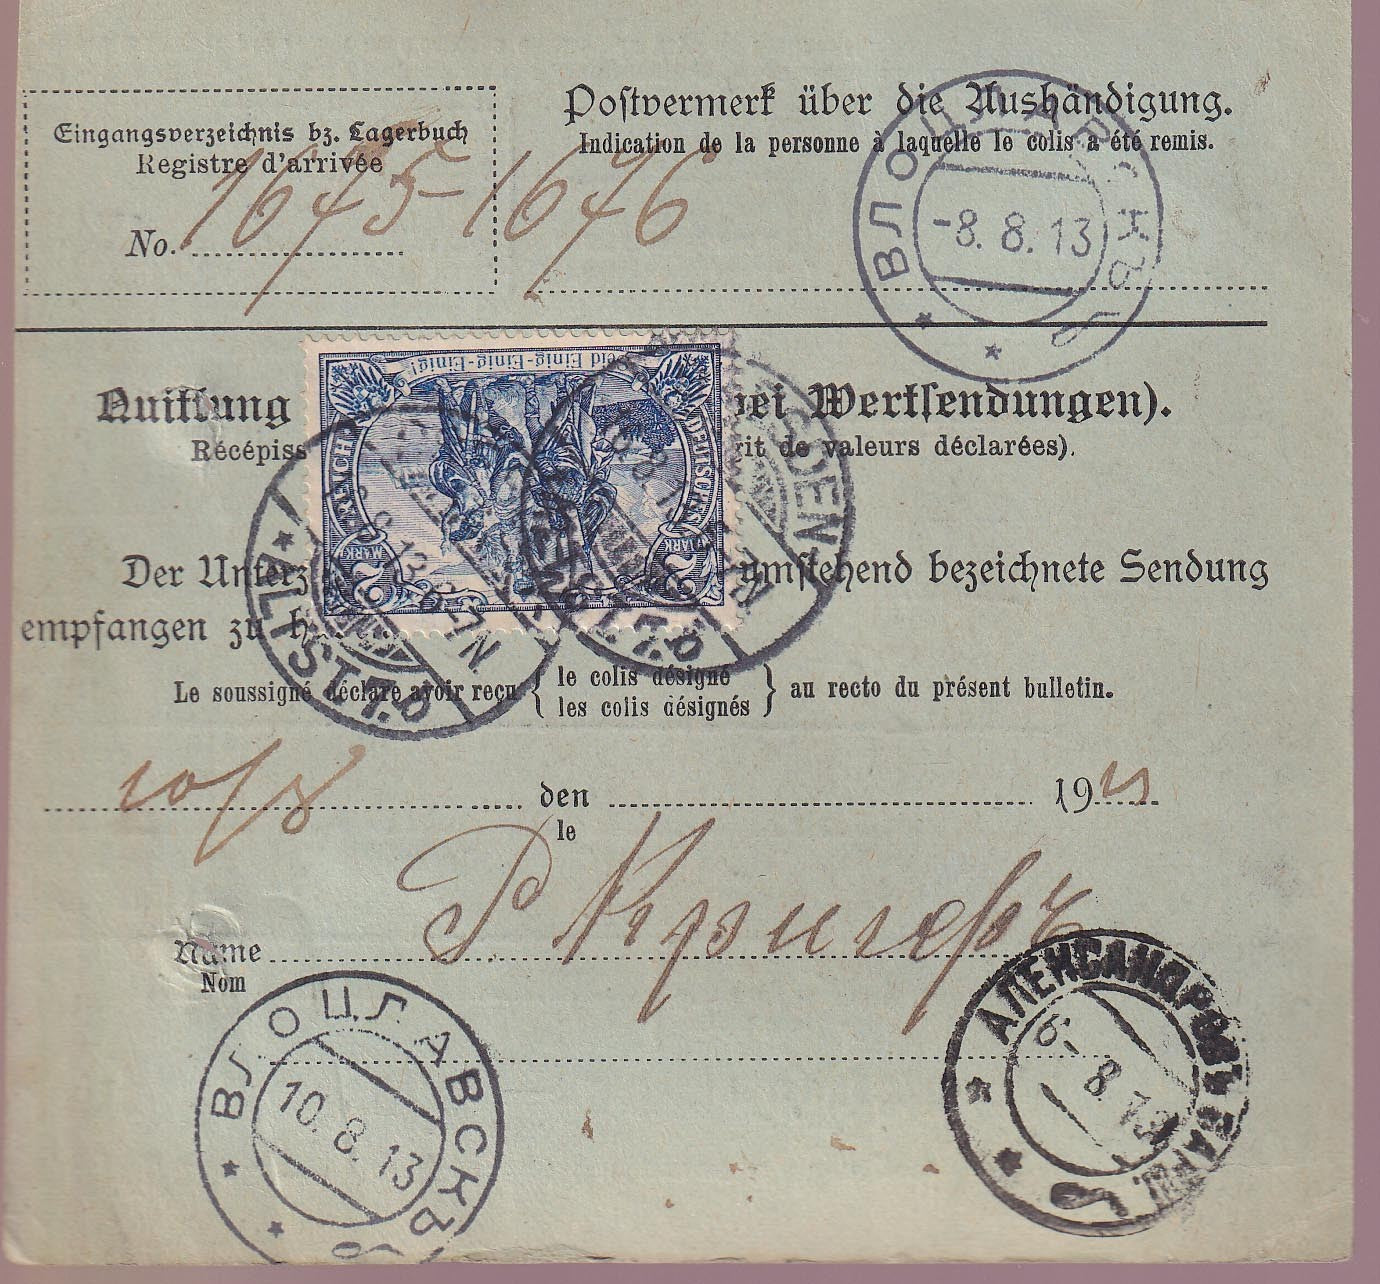 Postvermerk über die Aushändigung.
Indication de la personne à laquelle le colis a été remis.
Eingangsverzeichnis bz. Lagerbuch
Registre d'arrivée
No. 1645-1646
ВЛОЦЛАВСКЪ
-8. 8. 13
Quittung bei Wertsendungen).
Récépiss rit de valeurs déclarées).
eid Einig-Einig-Einig!
DEUTSCHES REICH
2 MARK 2 MARK
DRESDEN-ALTST. 7. b
DRESDEN-ALTST. 7. b
Der Unterz umstehend bezeichnete Sendung
empfangen zu h
Le soussigné déclare avoir reçu { le colis désigné
les colis désignés } au recto du présent bulletin.
10/8 den 19
le
Name
Nom
ВЛОЦЛАВСКЪ
10. 8. 13
АЛЕКСАНДРОВЪ ВАРШ.
6- 8. 13